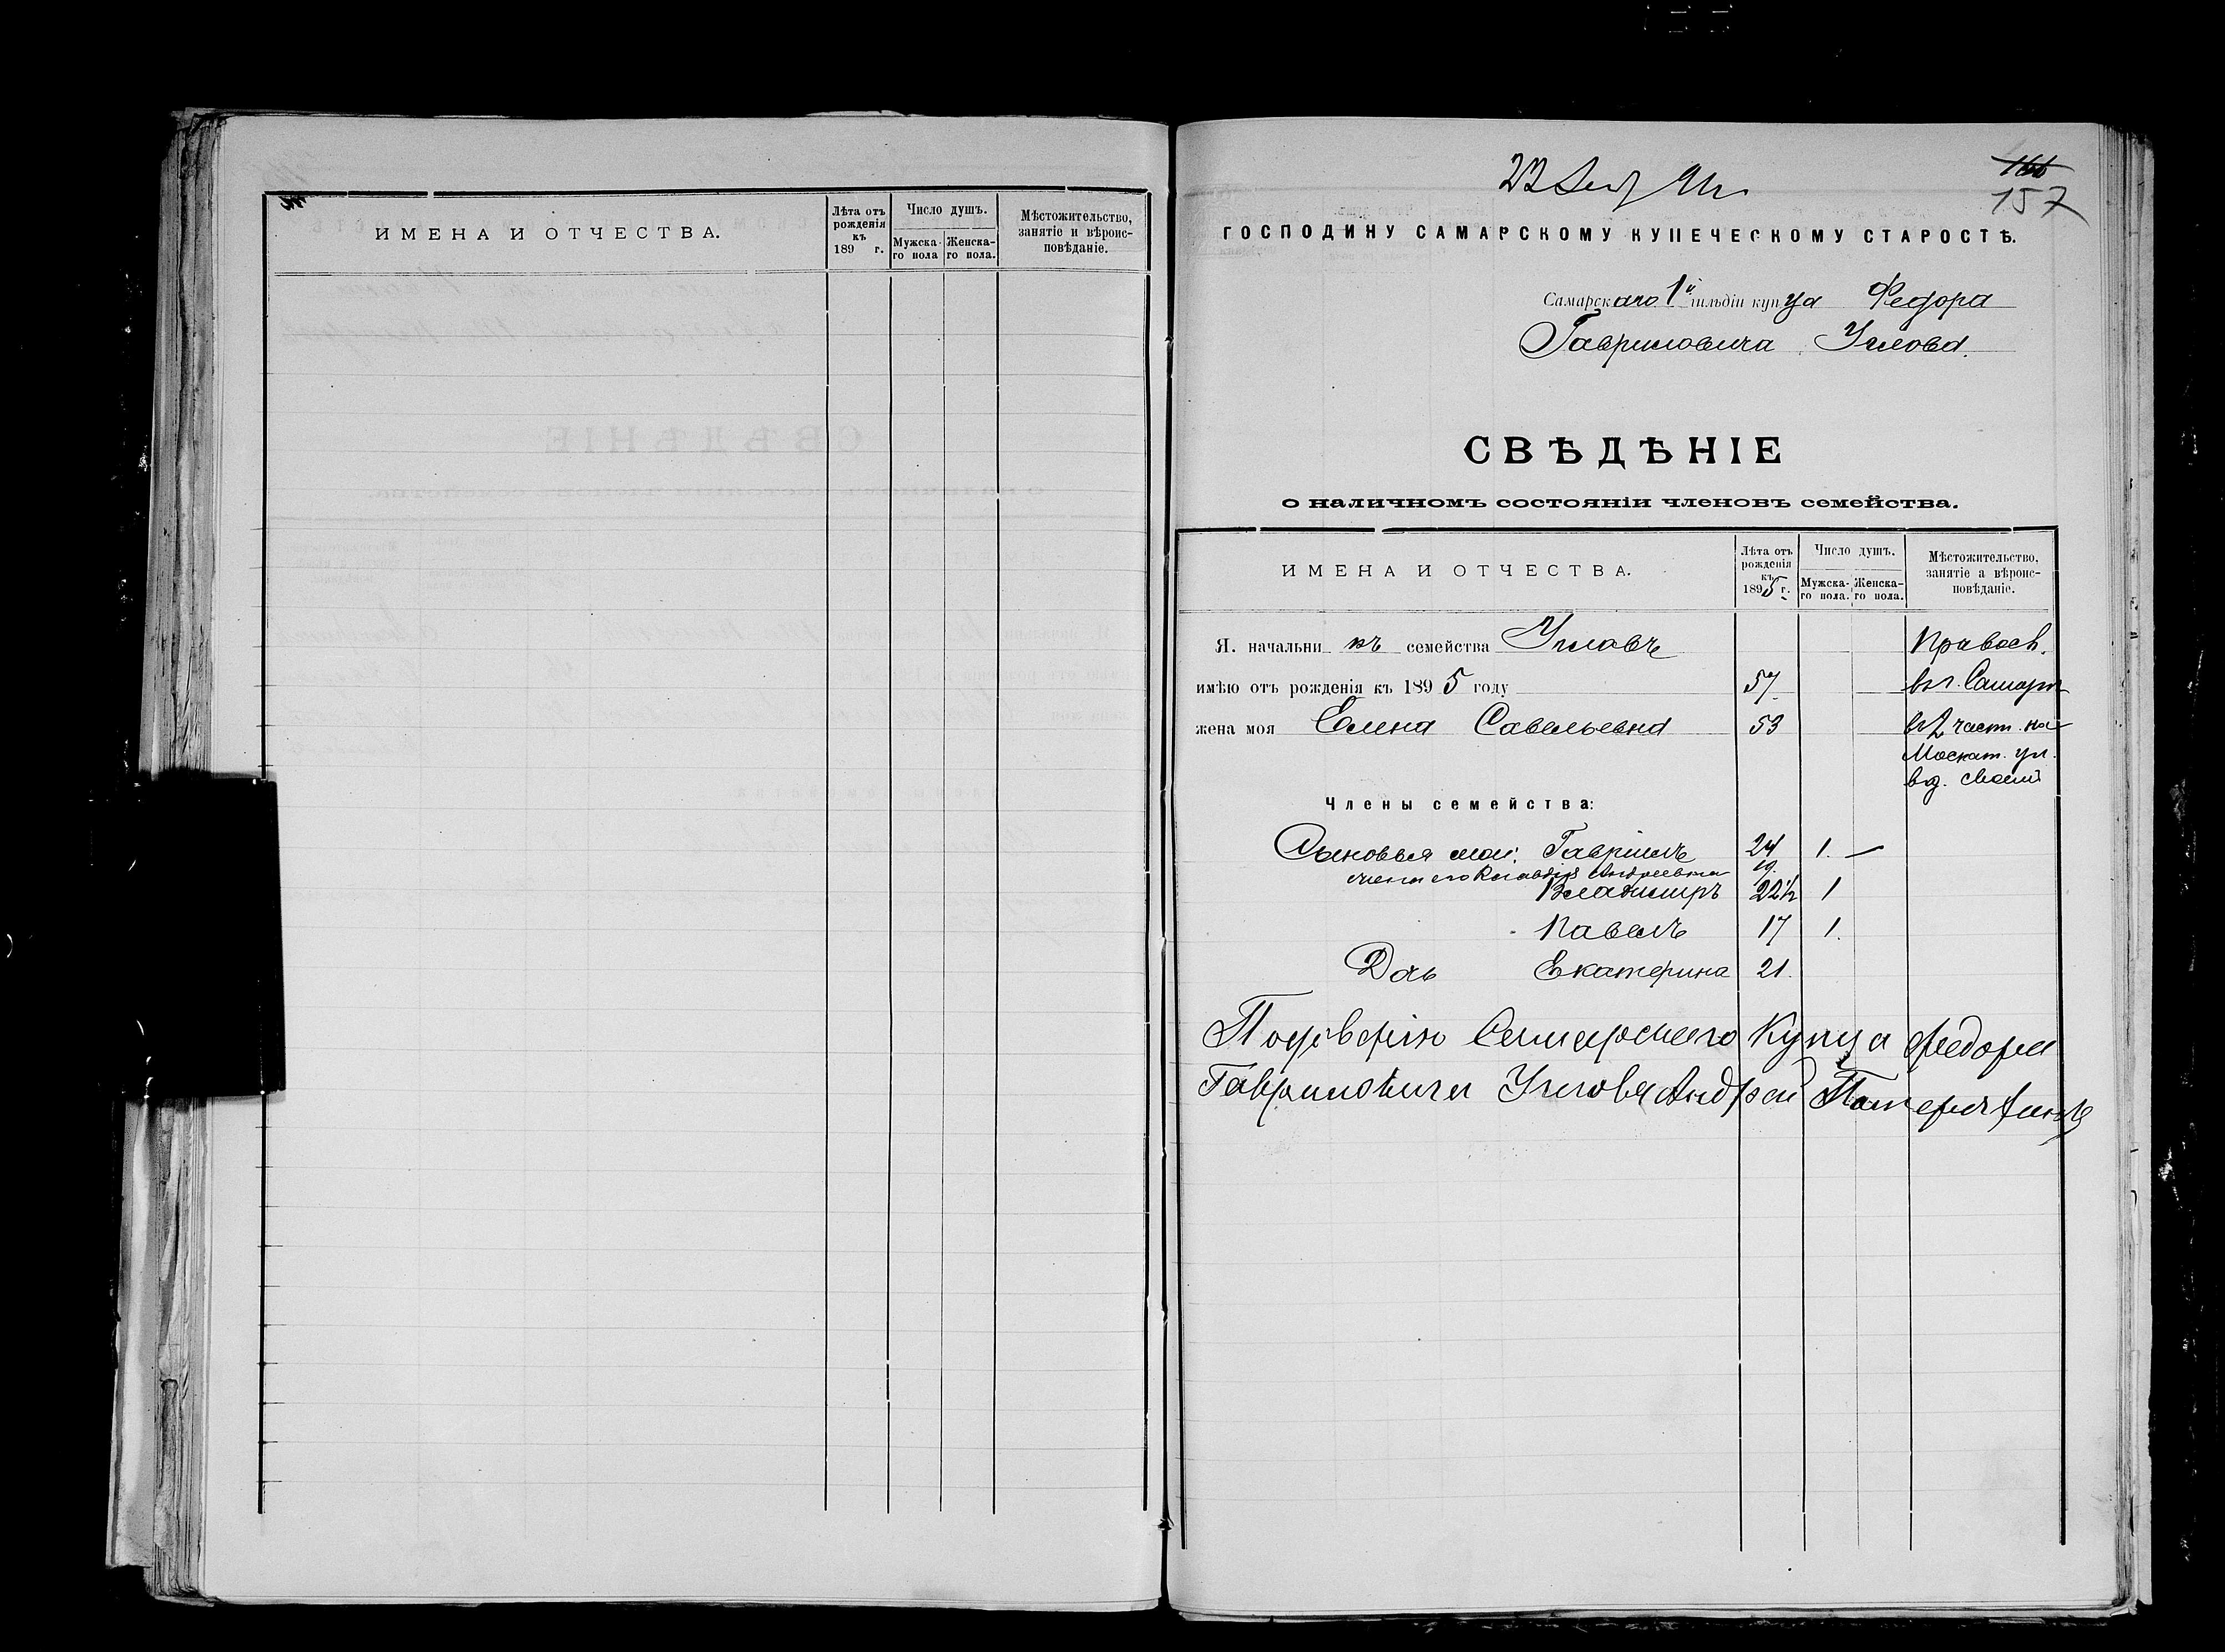 ИМЕНА И ОТЧЕСТВА.
Лѣта отъ рожденія къ 189 г.
Число душъ.
Мужска-го пола
Женска-го пола.
Мѣстожительство, занятіе и вѣроис-повѣданіе.
22
166
157
ГОСПОДИНУ САМАРСКОМУ КУПЕЧЕСКОМУ СТАРОСТѢ.
Самарскаго 1й гильдіи купца Федора
Гавриловича Углова.
СВѢДѢНІЕ
о наличномъ состояніи членовъ семейства.
ИМЕНА И ОТЧЕСТВА.
Лѣта отъ рожденія къ 1895 г.
Число душъ.
Мужска-го пола.
Женска-го пола.
Мѣстожительство, занятіе а вѣроис-повѣданіе.
Я. начальникъ семейства Угловъ Правосл.
имѣю отъ рожденія къ 1895 году 57. въ г. Самарѣ
жена моя Елена Савельевна 53 въ 2 част. на
Москат. ул.
в д. своемъ
Члены семейства:
Сыновья мои: Гавріилъ 24 1. —
жена его Клавдія Андреевна 19.
Владимиръ 22½ 1
Павелъ 17 1.
Дочь Екатерина 21.
Подоверію Самарскаго Купца Федора
Гавриловича Углова Андрей